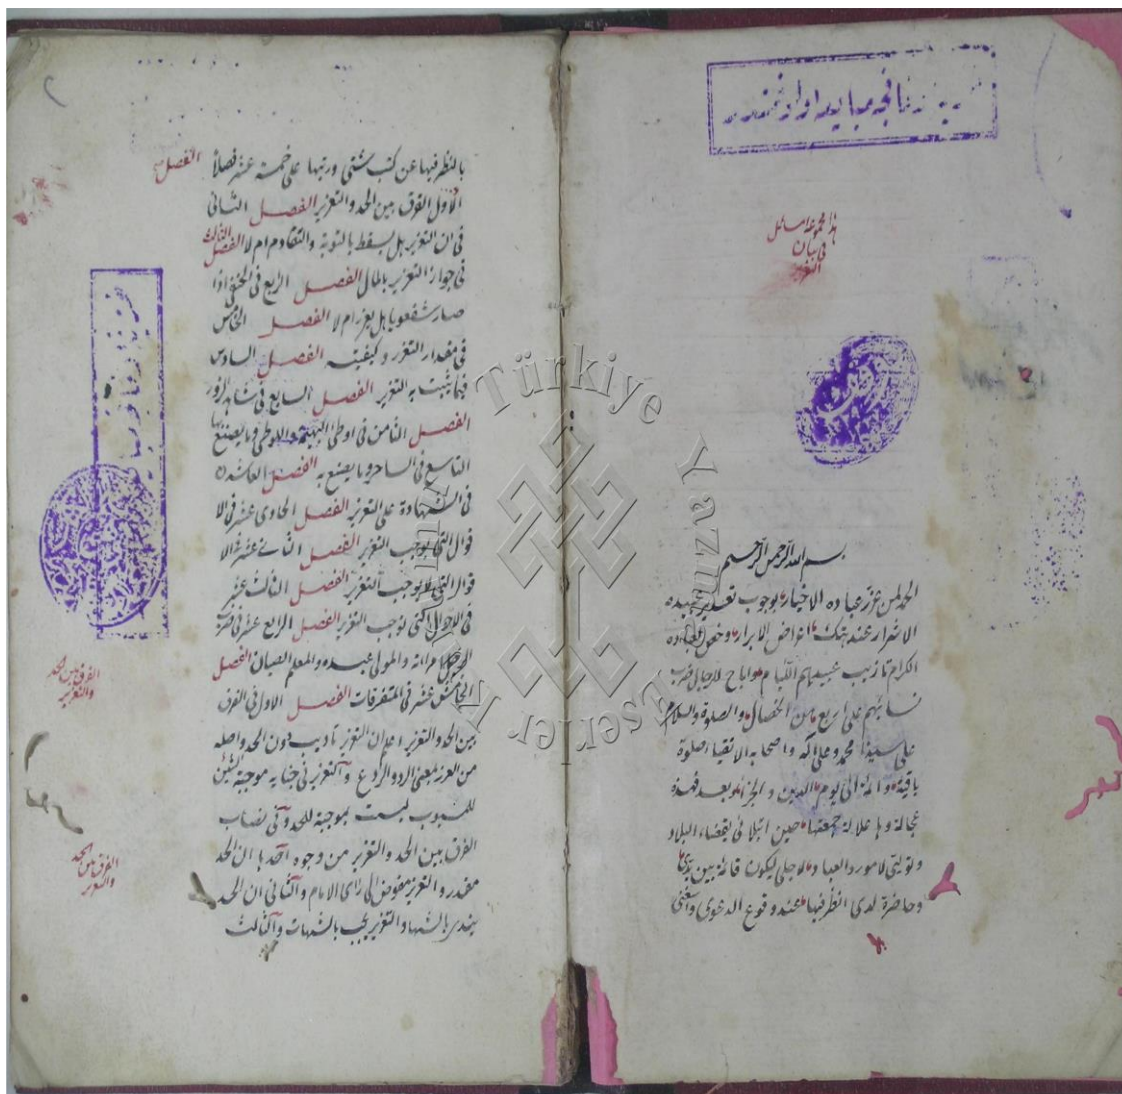 هذا مجموعة مسائل
في بيان
التعزير
بسم الله الرحمن الرحيم
الحمد لمن عزز عباده الاخيار بوجوب تعزير عبيده
الاشرار عند هتك اعراض الابرار وخص عباده
الكرام تاديب عبيدهم اللئام واباح للرجال ضرب
نسائهم على اربع من الخصال والصلوة والسلام
على سيدنا محمد وعلى اله واصحابه الاتقيا صلوة
باقية دائمة الى يوم الدين والجزا وبعد فهذه
عجالة وعلالة جمعتها حين ابتلائى بقضاء البلاد
وتوليتى لامور العباد لاجلى ليكون قائة بين يدى
وحاضرة لدى انظر فيها عند وقوع الدعوى واستغنى
بالنظر فيها عن كتب شتى ورتبها على خمسة عشر فصلا الفصل
الاول الفرق بين الحد والتعزير الفصل الثانى
فى ان التعزير هل يسقط بالتوبة والتقادم ام لا الفصل الثالث
فى جواز التعزير بالمال الفصل الرابع فى الحنفى اذا
صار شفعويا هل يعزر ام لا الفصل الخامس
فى مقدار التعزر وكيفيته الفصل السادس
فيما يثبت به التعزير الفصل السابع فى شاهد الزور
الفصل الثامن فى اوطى البهيمة واللوطى وما يصنع بها
التاسع فى الساحر وما يصنع به الفصل العاشر
فى الشهادة على التعزير الفصل الحادى عشر فى الا
قوال التى توجب التعزير الفصل الثانى عشر فى الا
قوال التى لا توجب التعزير الفصل الثالث عشر
فى الاحوال التى توجب التعزير الفصل الرابع عشر فى ضرب
الرجل امرائه والمولى عبده والمعلم الصبيان الفصل
الخامس عشر فى المتفرقات الفصل الاول فى الفرق
بين الحد والتعزير اعلم ان التعزير تاديب دون الحد واصله
من العزر بمعنى الرد والردع والتعزير فى جنايه موجبة الشين
للمسبوب ليست بموجبة للحد وفى نصاب
الفرق بين الحد والتعزير من وجوه احدها ان الحد
مقدر والتعزير مفوض الى راى الامام والثانى ان الحد
يندرى بالشبهات والتعزير يجب بالشبهات والثالث
الفرق بين الحد
والتعزير
الفرق بين الحد
والتعزير